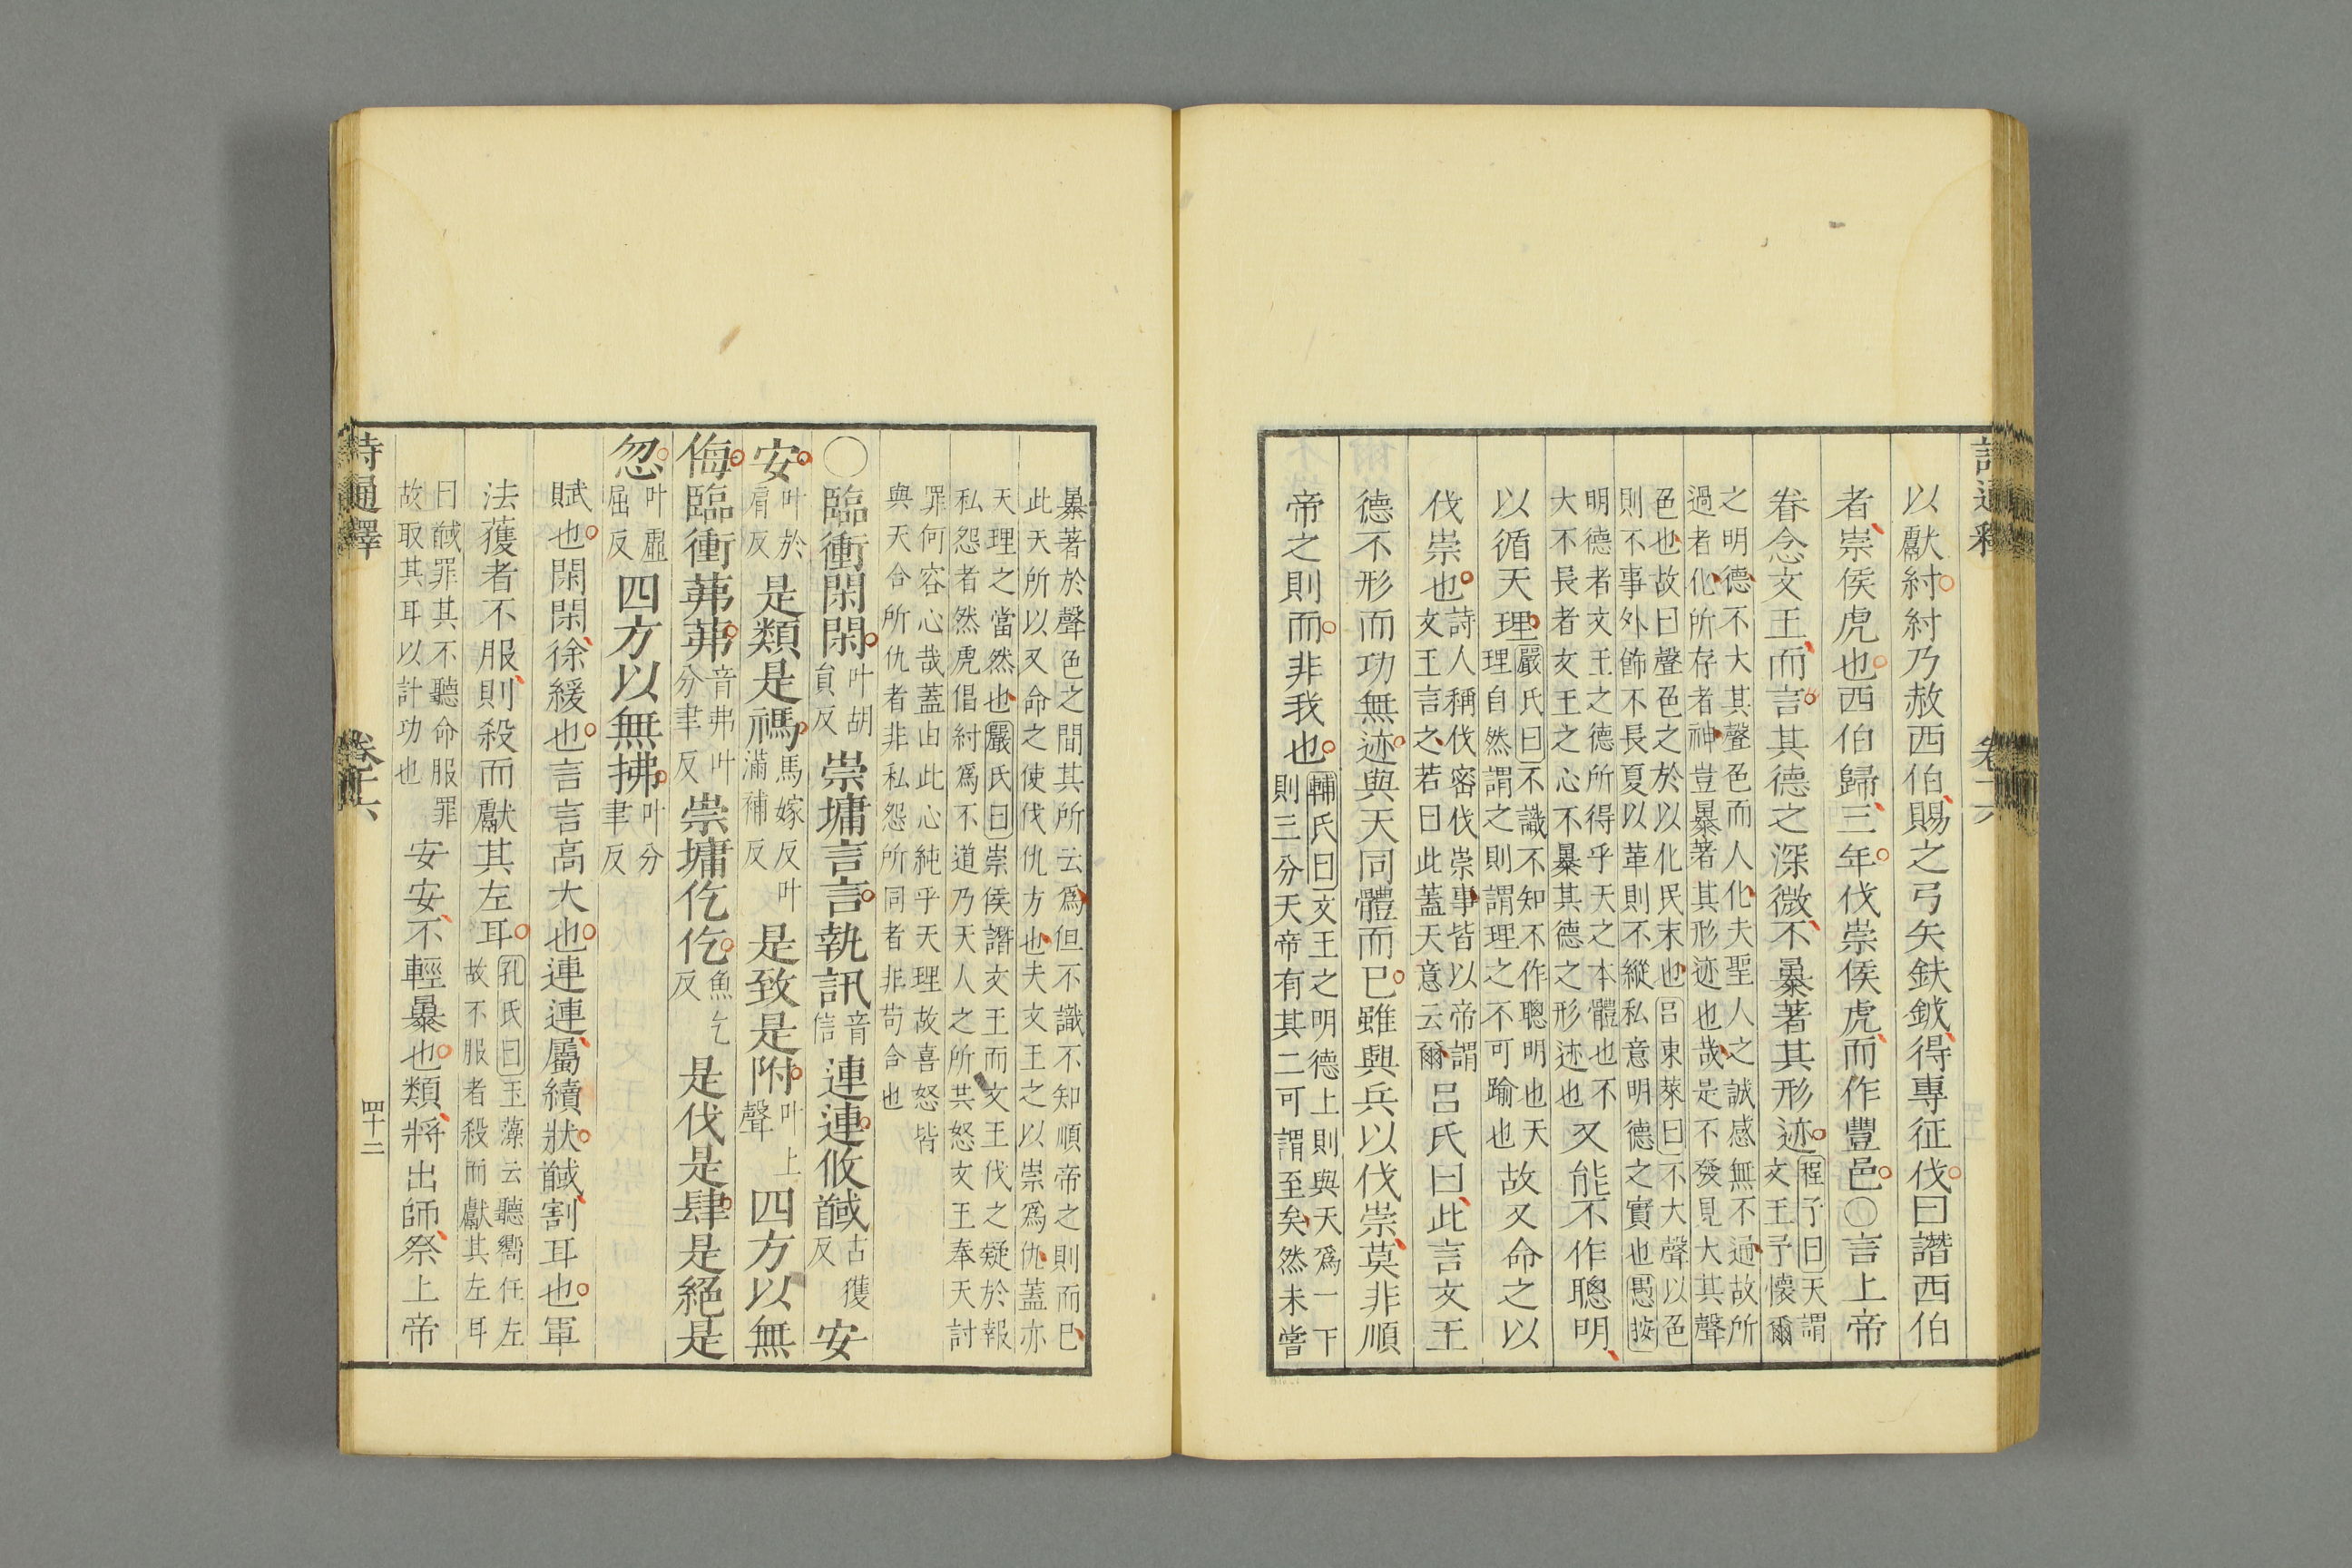 以獻紂紂乃赦西伯賜之弓矢鈇鉞得專征伐曰譖西伯
者崇侯虎也西伯歸三年伐崇侯虎而作豐邑〇言上帝
眷念文王而言其德之深微不暴著其形迹程子曰天謂
文王予懷爾
之明德不大其聲色而人化夫聖人之誠感無不通故所
過者化所存者神豈暴著其形迹也哉是不發見大其聲
色也故曰聲色之於以化民末也呂東萊曰不大聲以色
則不事外飾不長夏以革則不縱私意明德之實也愚按
明德者文王之德所得乎天之本體也不
大不長者文王之心不暴其德之形迹也又能不作聰明
以循天理嚴氏曰不識不知不作聰明也天
理自然謂之則謂理之不可踰也故又命之以
伐崇也詩人稱伐密伐崇事皆以帝謂
文王言之若曰此蓋天意云爾呂氏曰此言文王
德不形而功無迹與天同體而已雖興兵以伐崇莫非順
帝之則而非我也輔氏曰文王之明德上則與天爲一下
則三分天帝有其二可謂至矣然未嘗
暴著於聲色之間其所云爲但不識不知順帝之則而已
此天所以又命之使伐仇方也夫文王之以崇爲仇蓋亦
天理之當然也嚴氏曰崇侯譖文王而文王伐之疑於報
私怨者然虎倡紂爲不道乃天人之所共怒文王奉天討
罪何容心哉蓋由此心純乎天理故喜怒皆
與天合所仇者非私怨所同者非苟合也
〇臨衝閑閑叶胡
員反崇墉言言執訊音
信連連攸馘古獲
反安
安叶於
肩反是類是禡馬嫁反叶
滿補反是致是附叶上
聲四方以無
侮臨衝茀茀音弗叶
分聿反崇墉仡仡魚乞
反是伐是肆是絕是
忽叶虛
屈反四方以無拂叶分
聿反
賦也閑閑徐緩也言言高大也連連屬續狀馘割耳也軍
法獲者不服則殺而獻其左耳孔氏曰玉藻云聽嚮任左
故不服者殺而獻其左耳
曰馘罪其不聽命服罪
故取其耳以計功也安安不輕暴也類將出師祭上帝
詩通釋
卷十六
四十二